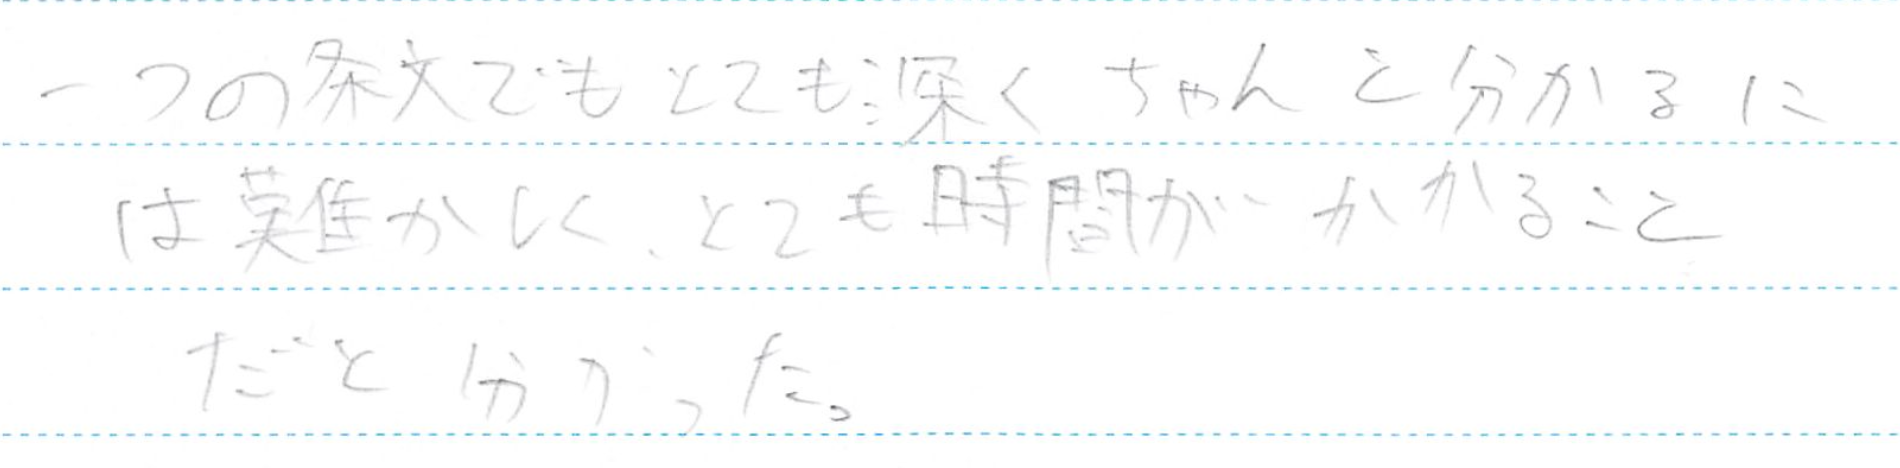 一つの条文でもとても深くちゃんと分かるに
は難かしく、とても時間がかかること
だと分かった。